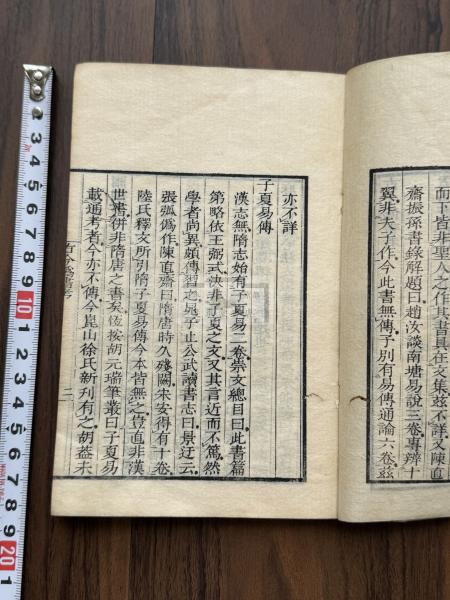 而下皆非聖人之作其書具在文集兹不詳又陳直
齋振孫書錄解題曰趙汝談南塘易說三卷專辨十
翼非夫子作今此書無傳予別有易傳通論六卷兹
亦不詳
子夏易傳
漢志無隋志始有子夏易二卷崇文總目曰此書篇
第略依王弼式決非子夏之文又其言近而不篤然
學者尚異頗傳習之晁子止公武讀書志曰景迂云
張弧偽作陳直齋曰隋唐時久殘闕朱安得有十卷
陸氏釋文所引隋子夏易傳今本皆無之豈直非漢
世書併非隋唐之書矣恆按胡元瑞筆叢曰子夏易
載通考者今亦不傳今崑山徐氏新刋有之胡葢未
古今偽書考
二
1 2 3 4 5 6 7 8 9 10 1 2 3 4 5 6 7 8 9 20 1